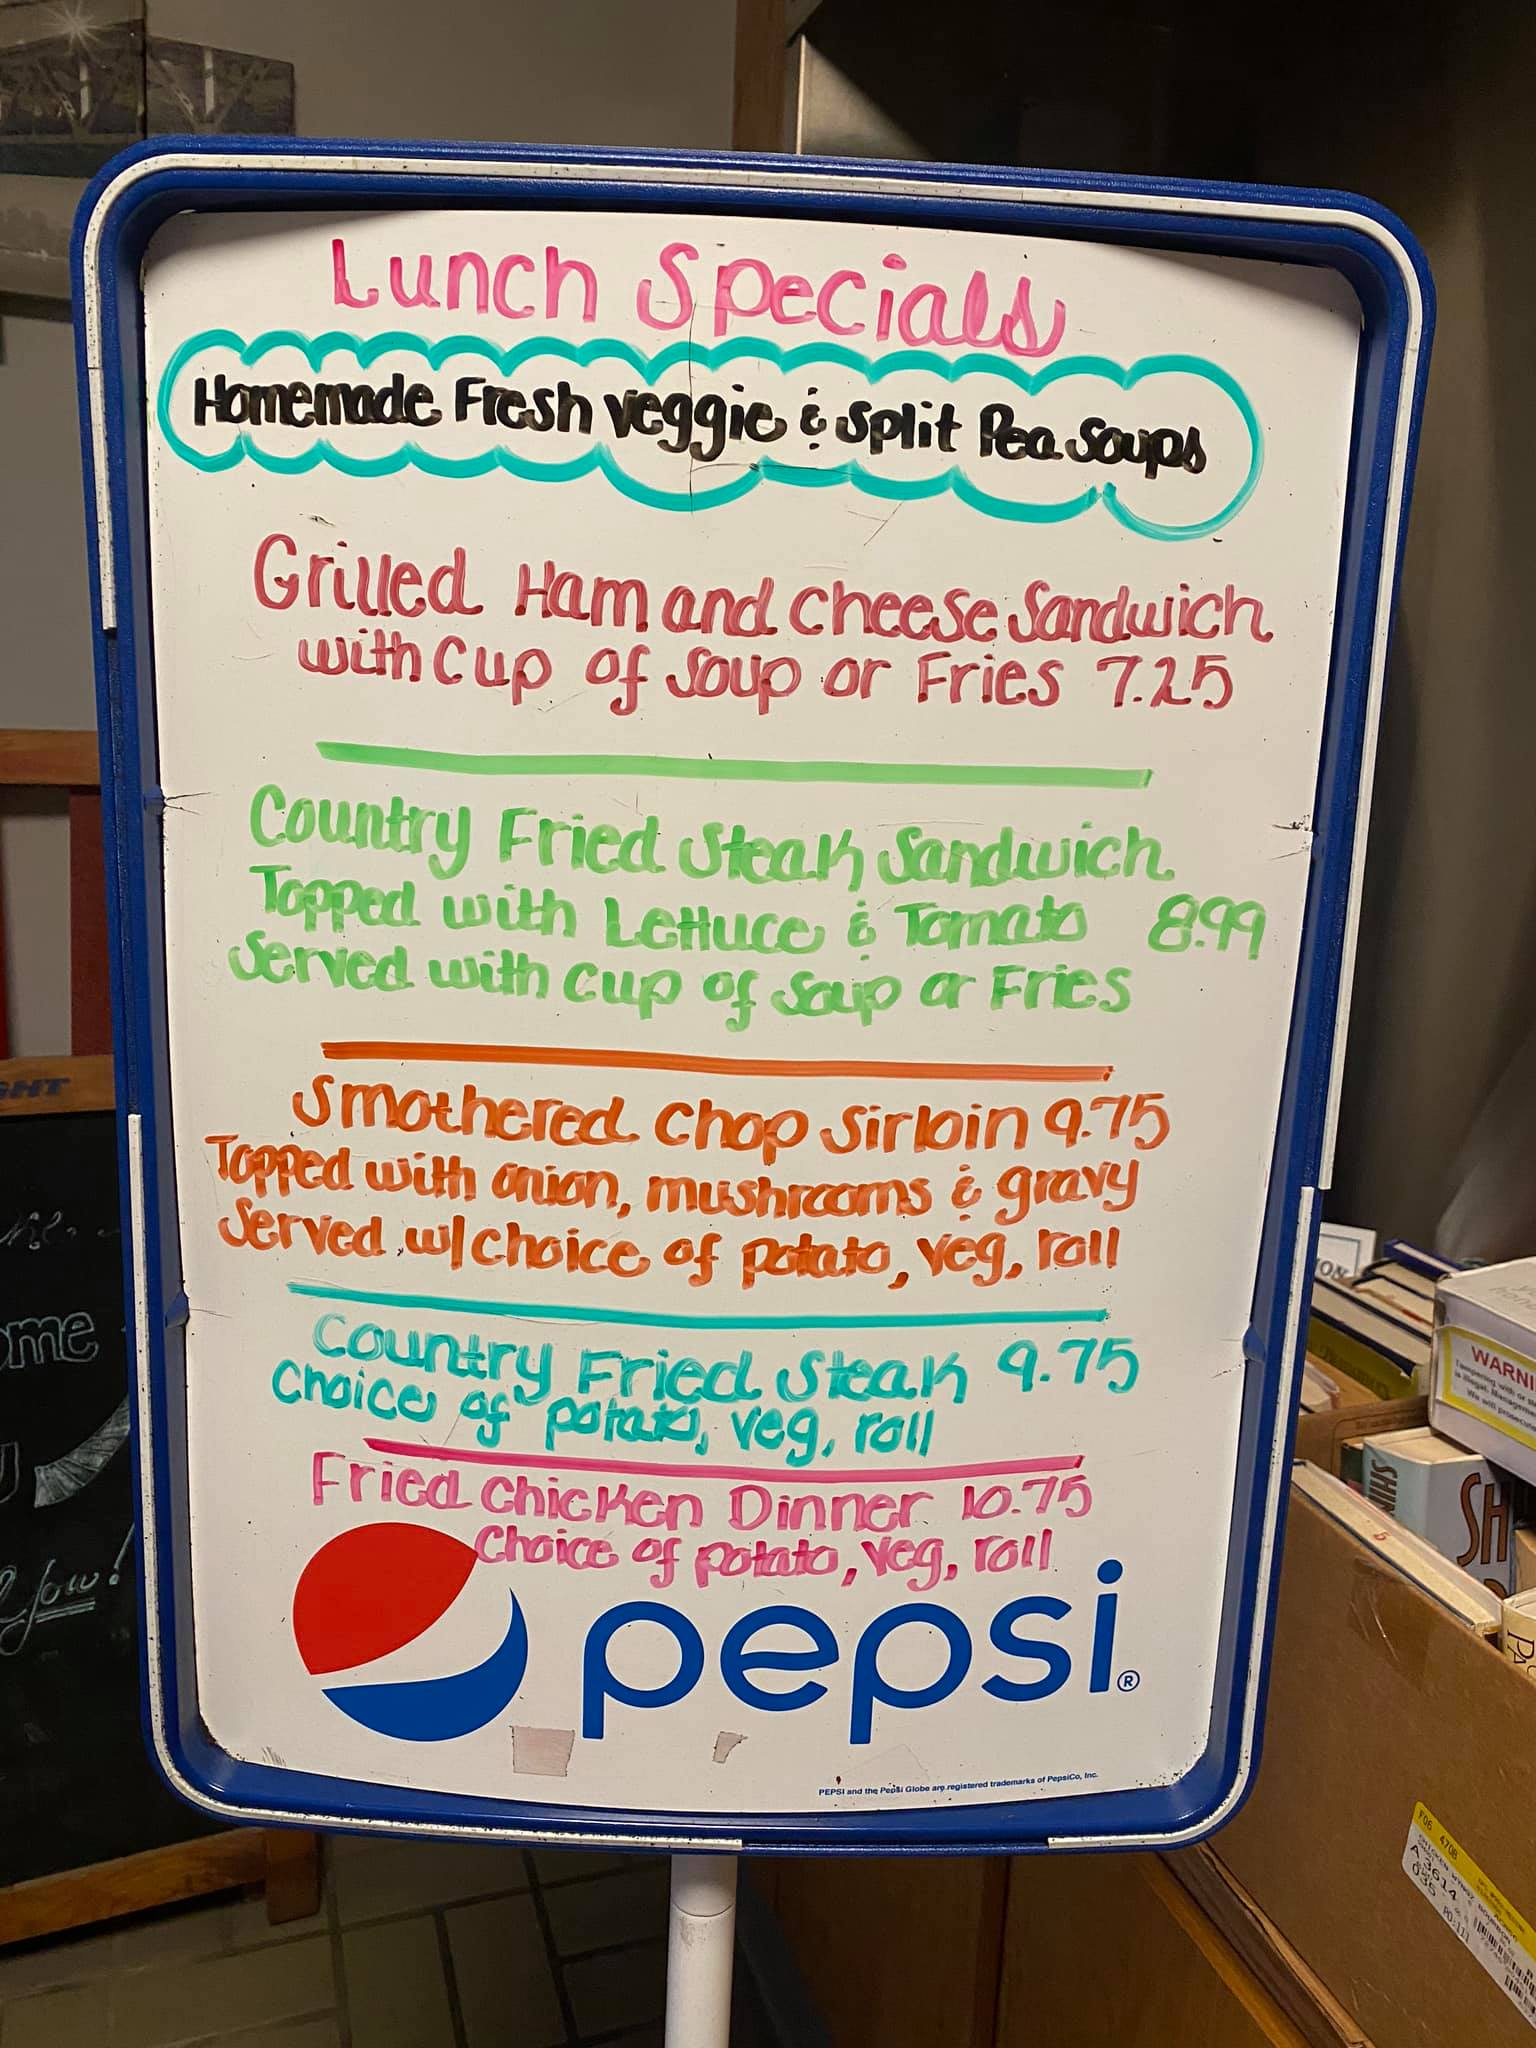 Lunch Specials
Homemade Fresh Veggie & Split Pea Soups
Grilled Ham and Cheese Sandwich
with Cup of Soup or Fries 7.25
Country Fried Steak Sandwich
Topped with Lettuce & Tomato 8.99
Served with Cup of Soup or Fries
Smothered Chop Sirloin 9.75
Topped with onion, mushrooms & gravy
Served w/choice of potato, veg, roll
Country Fried Steak 9.75
Choice of potato, veg, roll
Fried Chicken Dinner 10.75
Choice of potato, veg, roll
pepsi®
PEPSI and the Pepsi Globe are registered trademarks of PepsiCo, Inc.
ome
you!
WARNI
SH
F06 470B
A 3614
035